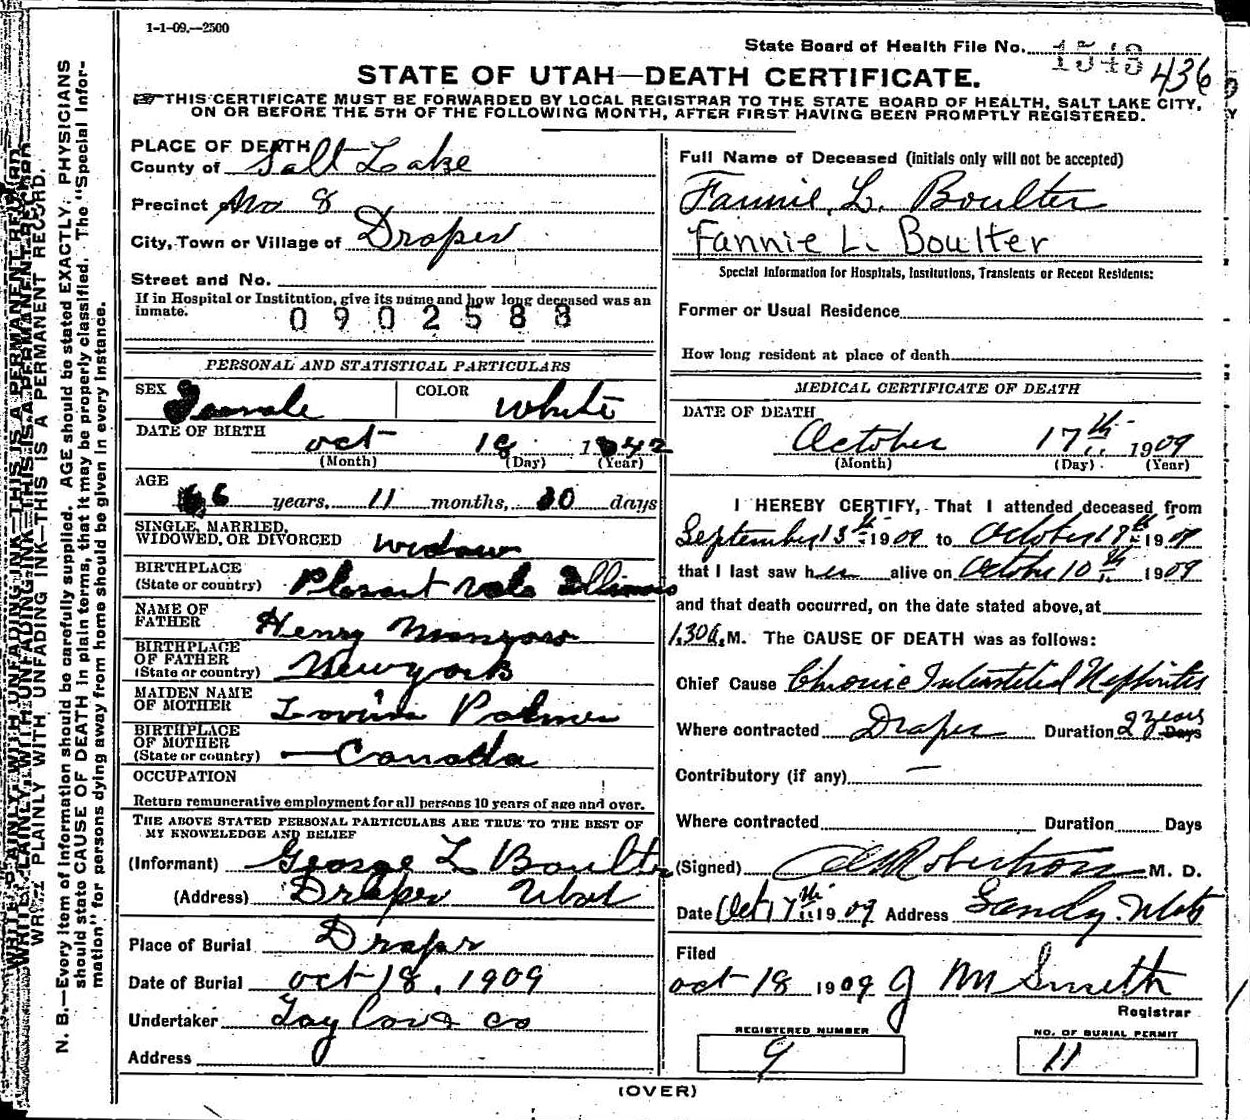 1-1-09.—2500
State Board of Health File No. 1543
436
STATE OF UTAH—DEATH CERTIFICATE.
☞THIS CERTIFICATE MUST BE FORWARDED BY LOCAL REGISTRAR TO THE STATE BOARD OF HEALTH, SALT LAKE CITY,
ON OR BEFORE THE 5TH OF THE FOLLOWING MONTH, AFTER FIRST HAVING BEEN PROMPTLY REGISTERED.
WRITE PLAINLY WITH UNFADING INK—THIS IS A PERMANENT RECORD.
N. B.—Every item of information should be carefully supplied. AGE should be stated EXACTLY. PHYSICIANS
should state CAUSE OF DEATH in plain terms, that it may be properly classified. The "Special Infor-
mation" for persons dying away from home should be given in every instance.
PLACE OF DEATH
County of Salt Lake
Precinct of No 8
City, Town or Village of Draper
Street and No.
If in Hospital or Institution, give its name and how long deceased was an
inmate.
0902588
PERSONAL AND STATISTICAL PARTICULARS
SEX Female COLOR White
DATE OF BIRTH
oct 18 1842
(Month) (Day) (Year)
AGE
66 years, 11 months, 30 days
SINGLE, MARRIED,
WIDOWED, OR DIVORCED widow
BIRTHPLACE
(State or country) Plesant vale Illinois
NAME OF
FATHER Henry
BIRTHPLACE
OF FATHER
(State or country) New york
MAIDEN NAME
OF MOTHER Lovina Palmer
BIRTHPLACE
OF MOTHER
(State or country) —Canada
OCCUPATION
Return remunerative employment for all persons 10 years of age and over.
THE ABOVE STATED PERSONAL PARTICULARS ARE TRUE TO THE BEST OF
MY KNOWLEDGE AND BELIEF
(Informant) George L Boulter
(Address) Draper Utah
Place of Burial Draper
Date of Burial oct 18, 1909
Undertaker co
Address
Full Name of Deceased (initials only will not be accepted)
Fannie L. Boulter
Fannie L. Boulter
Special Information for Hospitals, Institutions, Transients or Recent Residents:
Former or Usual Residence
How long resident at place of death
MEDICAL CERTIFICATE OF DEATH
DATE OF DEATH
October 17th 1909
(Month) (Day) (Year)
I HEREBY CERTIFY, That I attended deceased from
September 13th 1909 to October 17th 1909
that I last saw her alive on October 10th 1909
and that death occurred, on the date stated above, at
1.30 a. M. The CAUSE OF DEATH was as follows:
Chief Cause Chronic Interstitial Nephritis
Where contracted Draper Duration 2 years Days
Contributory (if any) —
Where contracted Duration Days
(Signed) Robertson M. D.
Date Oct 17th 1909 Address Sandy. Utah
Filed
oct 18 1909 J M Smith
Registrar
REGISTERED NUMBER
9
NO. OF BURIAL PERMIT
11
(OVER)